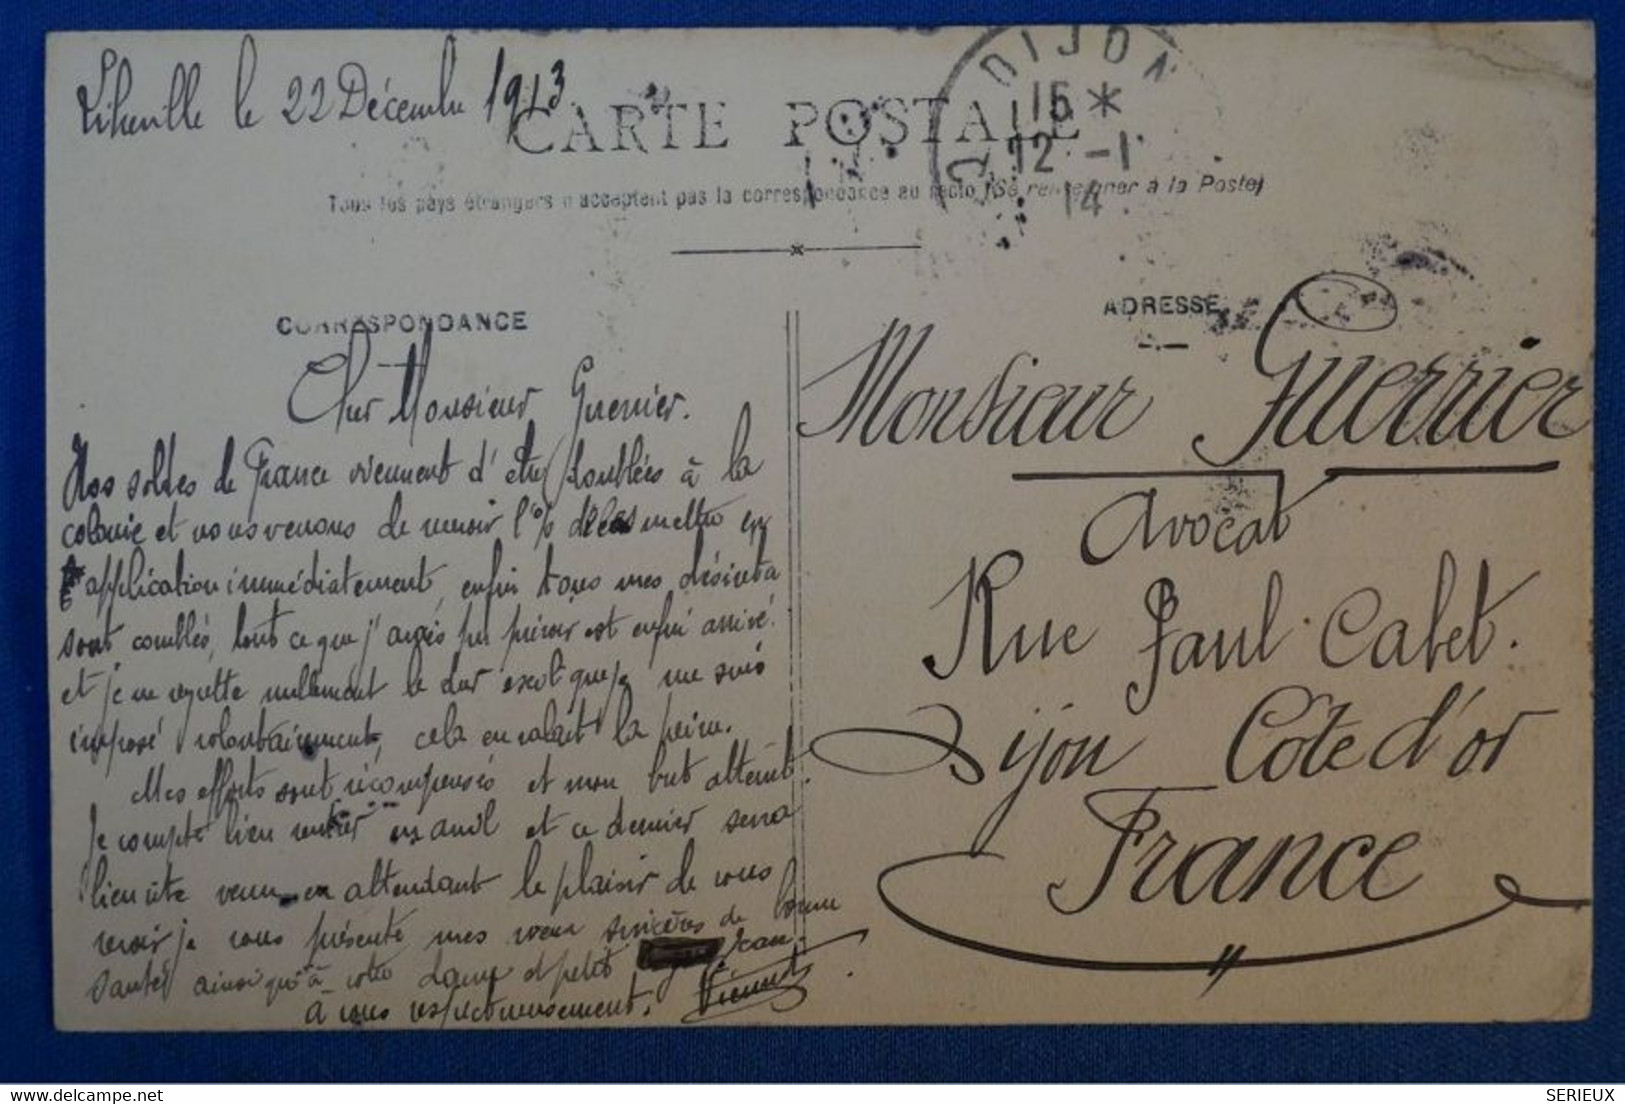 le 22 Décembre 1913
CARTE POSTALE
Tous les pays étrangers n'acceptent pas la correspondance au recto (Se renseigner à la Poste)
DIJON
15 *
12 -1
14
CORRESPONDANCE
ADRESSE
Cher Monsieur Guerrier.
Nos soldes de France viennent d'être doublées à la
colonie et nous venons de recevoir l'o/s de les mettre en
application immédiatement, enfin tous mes désirata
sont comblés, tout ce que j'avais pu prévoir est enfin arrivé.
et je ne regrette nullement le dur exil que je me suis
imposé volontairement, cela en valait la peine.
Mes efforts sont récompensés et mon but atteint.
Je compte bien rentrer en avril et ce dernier sera
bien vite venu en attendant le plaisir de vous
revoir je vous présente mes vœux sincères de bonne
santé ainsi qu'à votre dame et petit Jean
à vous respectueusement.
Monsieur Guerrier
Avocat
Rue Paul Cabet.
Dijon Côte d'or
France
SERIEUX